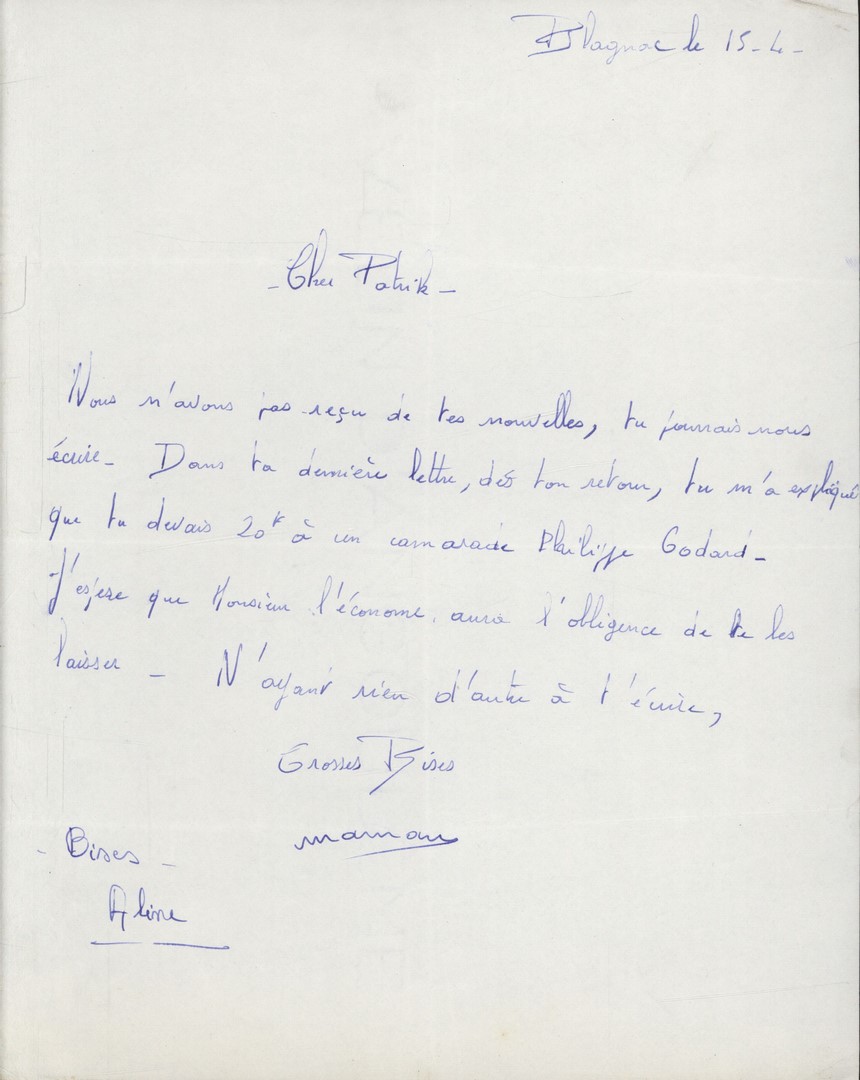 Blagnac le 15-4-
- Cher Patrik -
Nous n'avons pas reçu de tes nouvelles, tu pourrais nous
écrire - Dans ta dernière lettre, dés ton retour, tu m'a expliqué
que tu devais 20F à un camarade Philippe Godard -
J'espere que Monsieur l'économe, aura l'obligence de te les
laisser - N'ayant rien d'autre à t'écrire,
Grosses Bises
maman
- Bises -
Aline